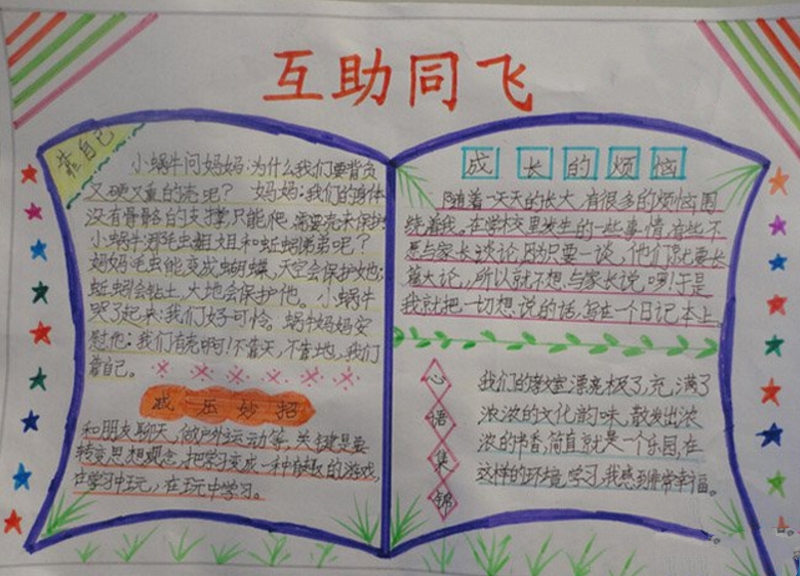 互助同飞
靠自己
小蜗牛问妈妈:为什么我们要背负
又硬又重的壳呢? 妈妈:我们的身体
没有骨骼的支撑,只能爬,需要壳来保护!
小蜗牛:毛虫姐姐和蚯蚓弟弟呢?
妈妈:毛虫能变成蝴蝶,天空会保护她;
蚯蚓会钻土,大地会保护他。小蜗牛
哭了起来:我们好可怜。蜗牛妈妈安
慰他:我们有壳啊!不靠天,不靠地,我们
靠自己。
减压妙招
和朋友聊天,做户外运动等,关键是要
转变思想观念,把学习变成一种有趣的游戏,
在学习中玩,在玩中学习。
成长的烦恼
随着一天天的长大,有很多的烦恼围
绕着我。在学校里发生的一些事情,有些不
愿与家长谈论,因为只要一谈,他们就要长
篇大论,所以就不想与家长说,啰!于是
我就把一切想说的话,写在一个日记本上。
心语集锦
我们的教室漂亮极了,充满了
浓浓的文化韵味,散发出浓
浓的书香,简直就是一个乐园,在
这样的环境学习,我感到非常幸福。